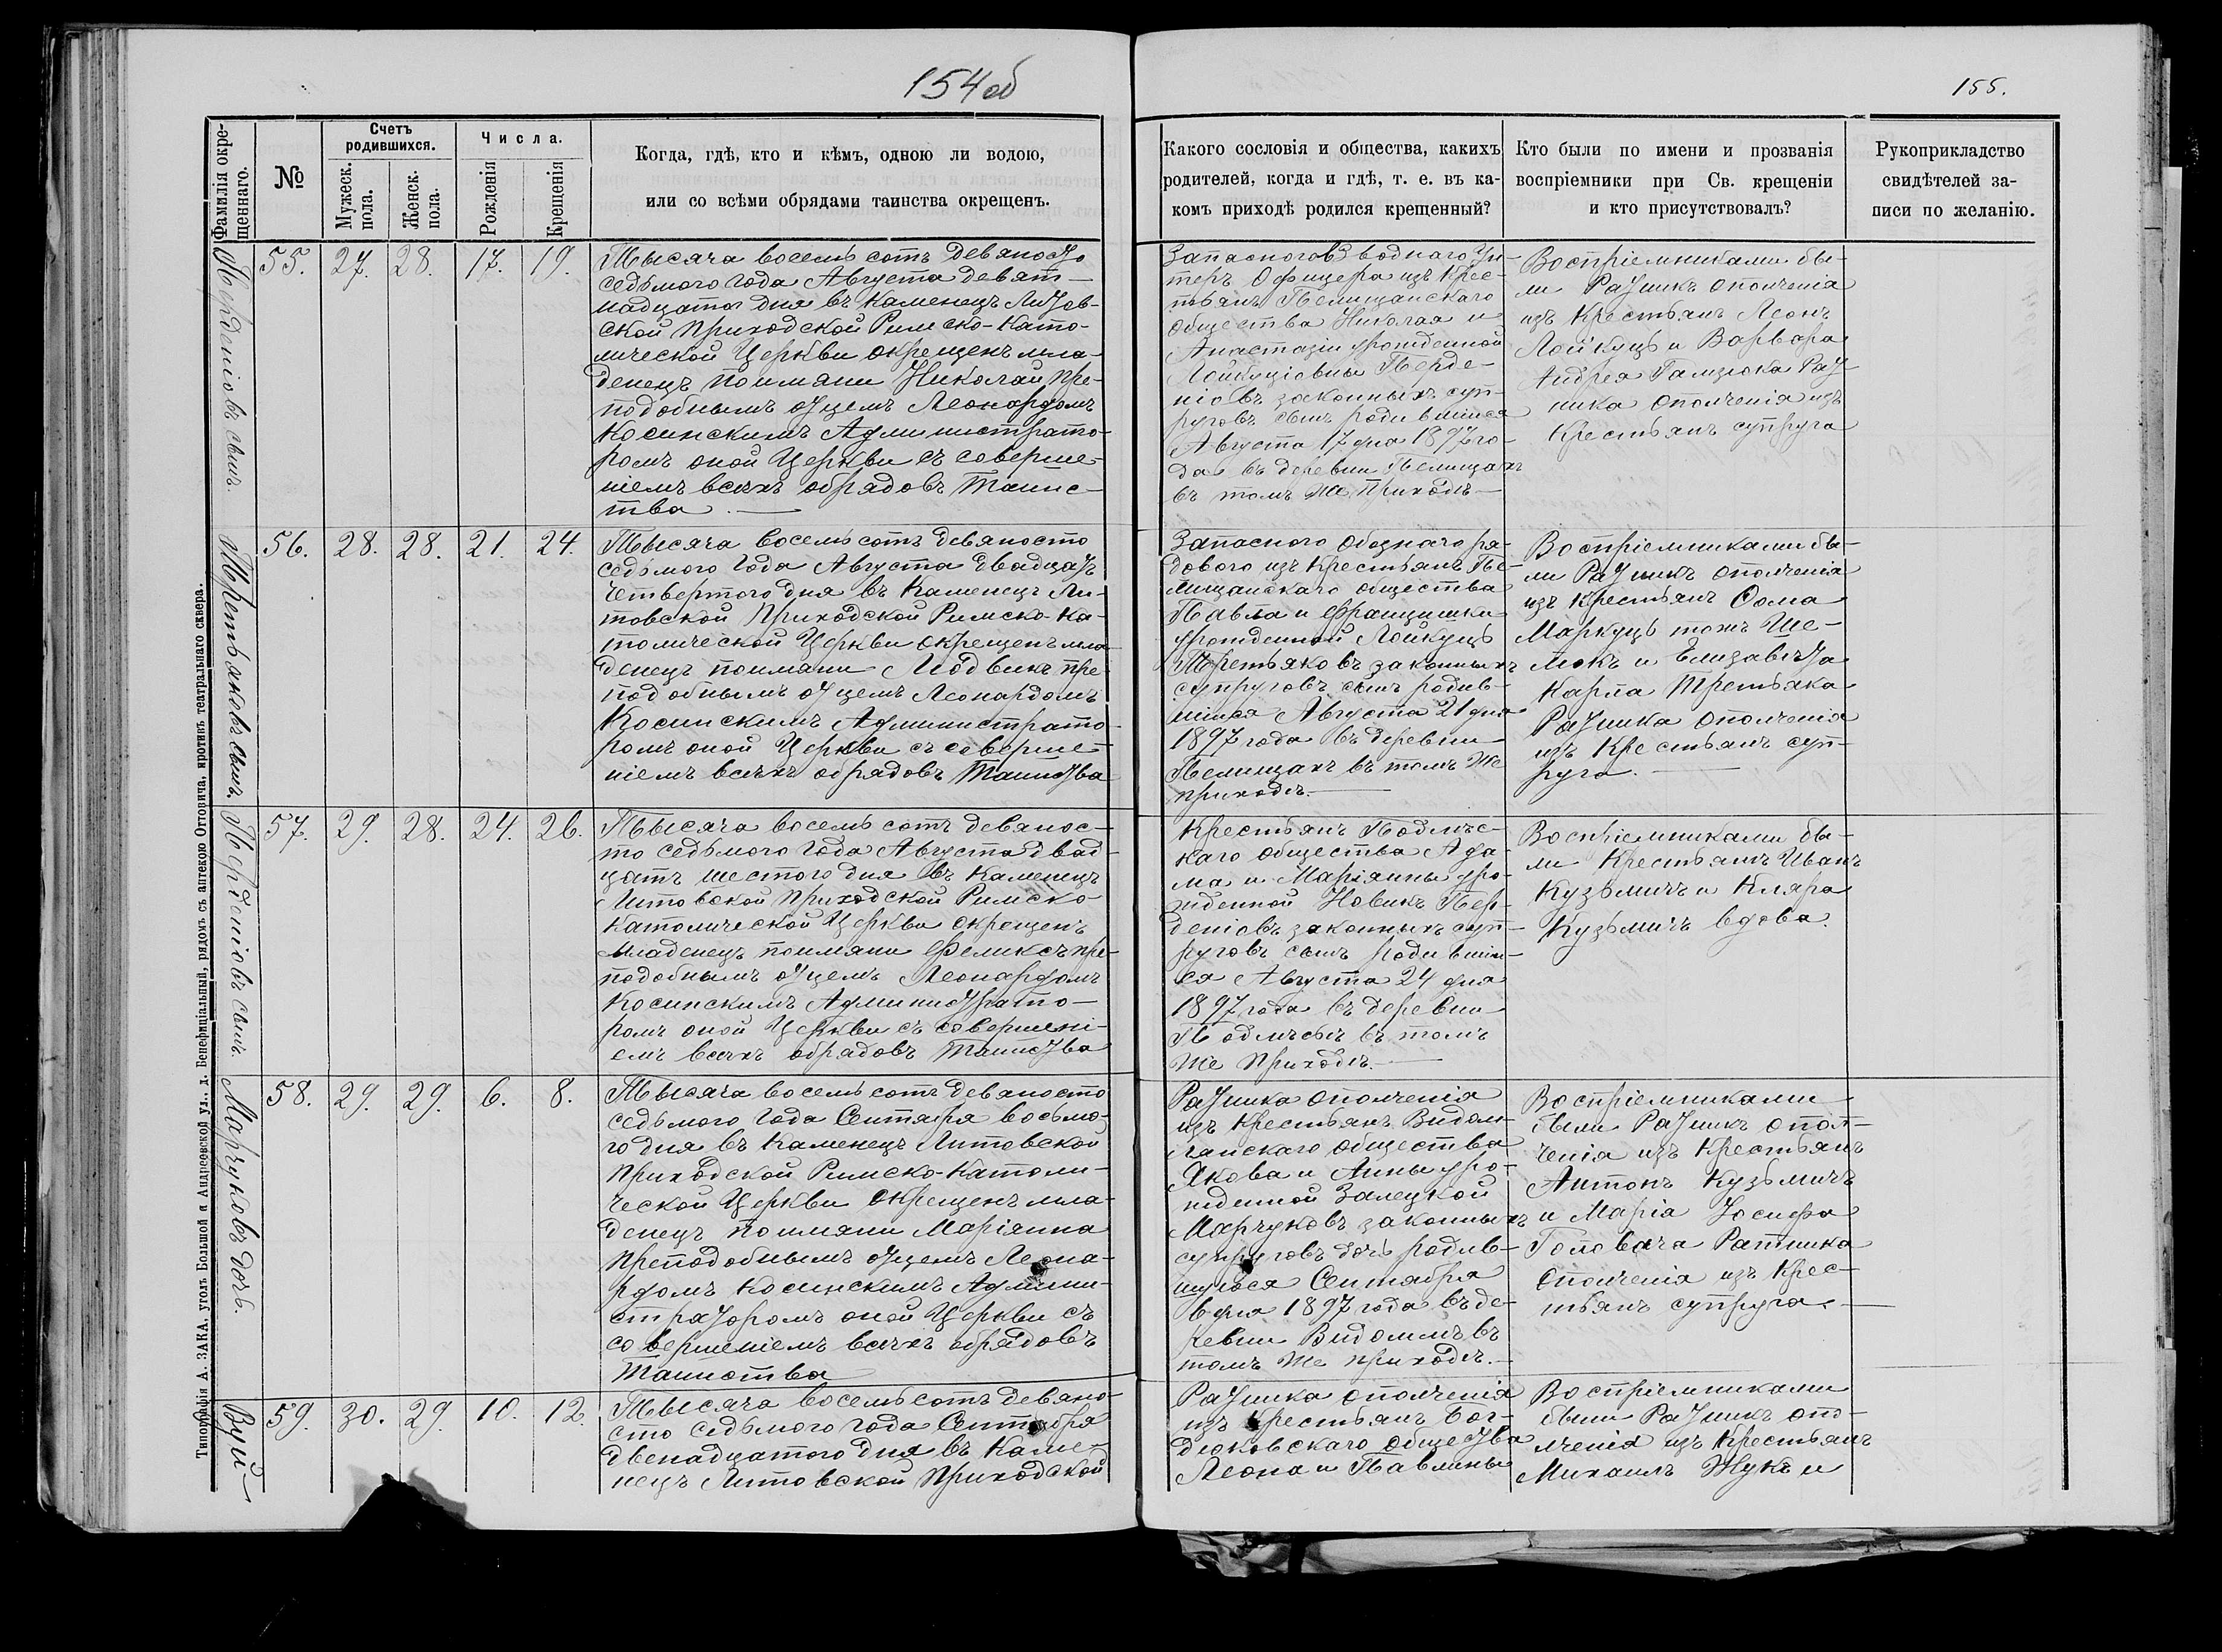 154 об
155.
Фамилія окре-
щеннаго.
№
Счетъ
родившихся.
Мужеск.
пола.
Женск.
пола.
Числа.
Рожденія
Крещенія
Когда, гдѣ, кто и кѣмъ, одною ли водою,
или со всѣми обрядами таинства окрещенъ.
Какого сословія и общества, какихъ
родителей, когда и гдѣ, т. е. въ ка-
комъ приходѣ родился крещенный?
Кто были по имени и прозванія
воспріемники при Св. крещеніи
и кто присутствовалъ?
Рукоприкладство
свидѣтелей за-
писи по желанію.
Перденіовъ сынъ.
55. 27. 28. 17. 19.
Тысяча восемь сотъ девяносто
седьмого года Августа девят-
надцатаго дня въ Каменецъ Литов-
ской приходской Римско-Като-
лической Церкви окрещенъ мла-
денецъ поимяни Николай пре-
подобнымъ отцемъ Леонардомъ
Косинскимъ Администрато-
ромъ оной Церкви съ соверше-
ніемъ всѣхъ обрядовъ Таинс-
тва.
Запасного взводнаго Ун-
теръ Офицера изъ крес-
тьянъ Пелищанскаго
общества Николая и
Анастазіи урожденной
Лойкуціовны Перде-
ніовъ законныхъ суп-
руговъ сынъ родившійся
Августа 17 дня 1897 го-
да въ деревни Пелищахъ
въ томъ же приходѣ
Воспріемниками бы-
ли Ратникъ ополченія
изъ крестьянъ Леонъ
Лойкуць и Варвара
Андрея Гамзюка Рат-
ника ополченія изъ
крестьянъ супруга
Третьяковъ сынъ.
56. 28. 28. 21. 24.
Тысяча восемь сотъ девяносто
седьмого года Августа двадцать
четвертого дня въ Каменецъ Ли-
товской Приходской Римско-Ка-
толической Церкви окрещенъ мла-
денецъ поимяни Людвикъ пре-
подобнымъ отцемъ Леонардомъ
Косинскимъ Администрато-
ромъ оной Церкви съ соверше-
ніемъ всѣхъ обрядовъ Таинства
Запасного обознаго ря-
дового изъ крестьянъ Пе-
лищанскаго общества
Павла и Францишки
урожденной Лойкуць
Третьяковъ законныхъ
супруговъ сынъ родив-
шійся Августа 21 дня
1897 года въ деревни
Пелищахъ въ томъ же
приходѣ.
Воспріемниками бы-
ли Ратникъ ополченія
изъ крестьянъ Ѳома
Маркуць тожъ Ше-
люкъ и Елизавѣта
Карпа Третьяка
Ратника ополченія
изъ крестьянъ суп-
руга.
Перденіовъ сынъ.
57. 29. 28. 24. 26.
Тысяча восемь сотъ девянос-
то седьмого года Августа двад-
цать шестого дня въ Каменецъ
Литовской приходской Римско-
Католической Церкви окрещенъ
младенецъ поимяни Феликсъ пре-
подобнымъ отцемъ Леонардомъ
Косинскимъ Администрато-
ромъ оной Церкви съ совершені-
емъ всѣхъ обрядовъ Таинства
Крестьянъ Подлѣс-
каго общества Ада-
ма и Маріянны уро-
жденной Новикъ Пер-
деніовъ законныхъ суп-
руговъ сынъ родившій-
ся Августа 24 дня
1897 года въ деревни
Подлѣсьѣ въ томъ
же приходѣ.
Воспріемниками бы-
ли крестьянъ Иванъ
Кузьмичъ и Кляра
Кузьмичъ вдова.
Марчуковъ дочь.
58. 29. 29. 6. 8.
Тысяча восемь сотъ девяносто
седьмого года Сентября восьмо-
го дня въ Каменецъ Литовской
приходской Римско-Католи-
ческой Церкви окрещенъ мла-
денецъ поимяни Маріянна
преподобнымъ отцемъ Леона-
рдомъ Косинскимъ Админи-
страторомъ оной Церкви съ
совершеніемъ всѣхъ обрядовъ
Таинства
Ратника ополченія
изъ крестьянъ Видом-
лянскаго общества
Якова и Анны уро-
жденной Залецкой
Марчуковъ законныхъ
супруговъ дочь родив-
шуюся Сентября
6 дня 1897 года въ де-
ревни Видомлѣ въ
томъ же приходѣ.
Воспріемниками
были Ратникъ опол-
ченія изъ крестьянъ
Антонъ Кузьмичъ
и Марія Іосифа
Головача Ратника
ополченія изъ крес-
тьянъ супруга.
Вуй
59. 30. 29. 10. 12.
Тысяча восемь сотъ девяно-
сто седьмого года Сентября
двенадцатого дня въ Каме-
нецъ Литовской приходской
Ратника ополченія
изъ крестьянъ Бог-
дюковскаго общества
Леона и Павлины
Воспріемниками
были Ратникъ опо-
лченія изъ крестьянъ
Михаилъ Жукъ и
Типографія А. ЗАКА, уголъ Большой и Андреевской ул., д. Бенефиціальный, рядомъ съ аптекою Оттовича, противъ театральнаго сквера.